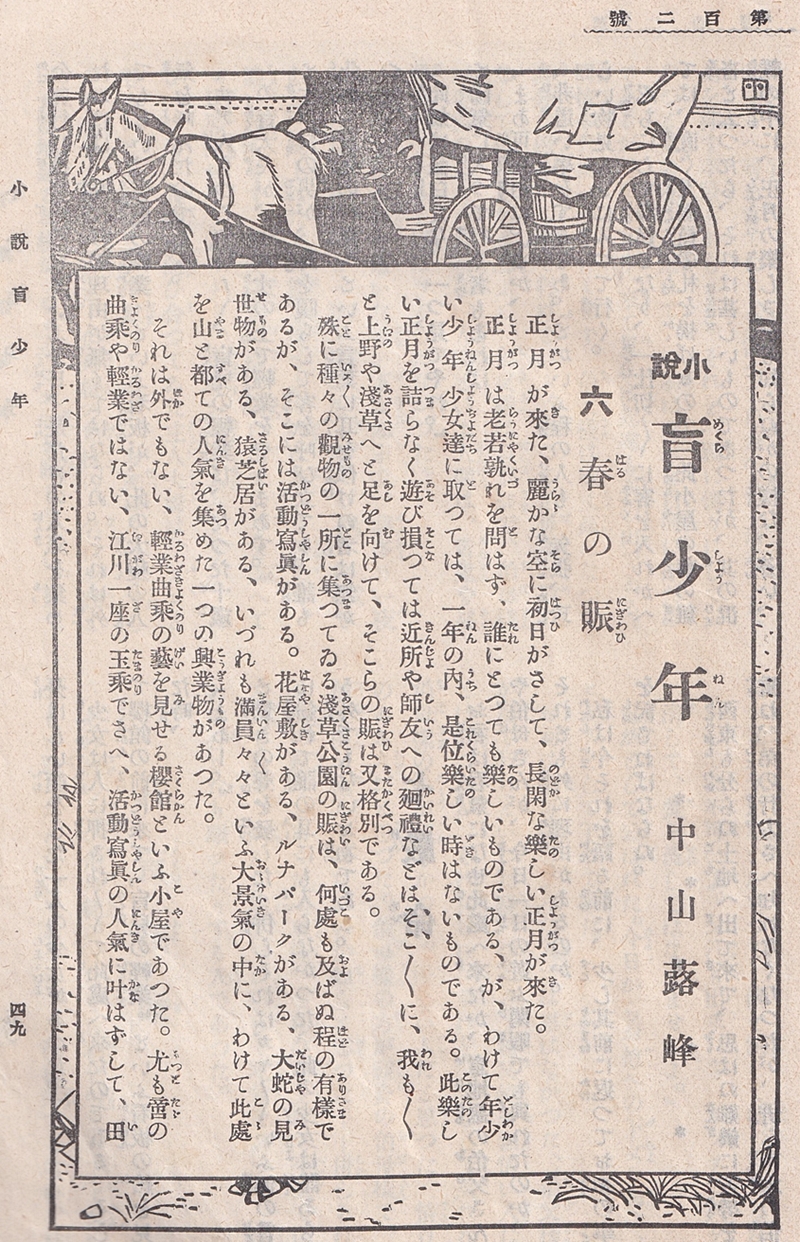 第百二號
小說 盲少年 中山蕗峰
六 春の賑
正月が來た、麗かな空に初日がさして、長閑な樂しい正月が來た。
正月は老若孰れを問はず、誰にとつても樂しいものである、が、わけて年少
い少年少女達に取つては、一年の內、是位樂しい時はないものである。此樂し
い正月を詰らなく遊び損つては近所や師友への廻禮などはそこ〱に、我も〱
と上野や淺草へと足を向けて、そこらの賑は又格別である。
殊に種々の觀物の一所に集つてゐる淺草公園の賑は、何處も及ばぬ程の有樣で
あるが、そこには活動寫眞がある。花屋敷がある、ルナパークがある、大蛇の見
世物がある、猿芝居がある、いづれも滿員々々といふ大景氣の中に、わけて此處
を山と都ての人氣を集めた一つの興業物があつた。
それは外でもない、輕業曲乘の藝を見せる櫻館といふ小屋であつた。尤も啻の
曲乘や輕業ではない、江川一座の玉乘でさへ、活動寫眞の人氣に叶はずして、田
小說盲少年
四九